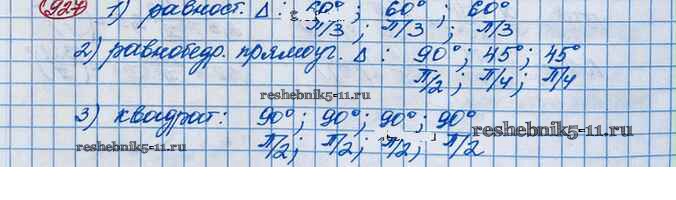 927 1) равност. Δ: 60°; 60°; 60°
π/3; π/3; π/3
2) равнобедр. прямоуг. Δ: 90°; 45°; 45°
π/2; π/4; π/4
reshebnik5-11.ru
3) квадрат: 90°; 90°; 90°; 90°
reshebnik5-11.ru
π/2; π/2; π/2; π/2
reshebnik5-11.ru